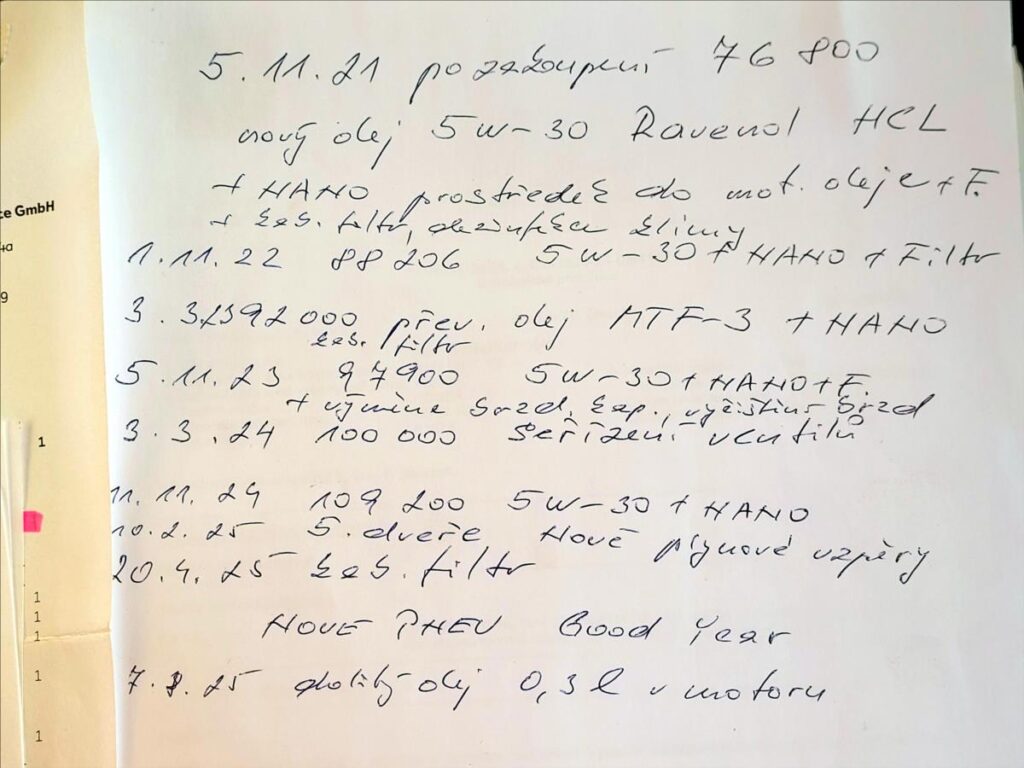 5.11.21 po zakoupení 76 800
nový olej 5W-30 Ravenol HCL
+ NANO prostředek do mot. oleje + F.
+ kab. filtr, dezinfekce klimy
1.11.22 88 206 5W-30 + NANO + Filtr
3.3. 92 000 přev. olej MTF-3 + NANO
kab. filtr
5.11.23 97900 5W-30 + NANO + F.
+ výměna brzd. kap., vyčištění brzd
3.3.24 100 000 Seřízení ventilů
11.11.24 109 200 5W-30 + NANO
10.2.25 5. dveře Nové plynové vzpěry
20.4.25 kab. filtr
NOVE PNEU Good Year
7.8.25 dolitý olej 0,3l v motoru
ce GmbH
4a
9
1
1
1
1
1
1